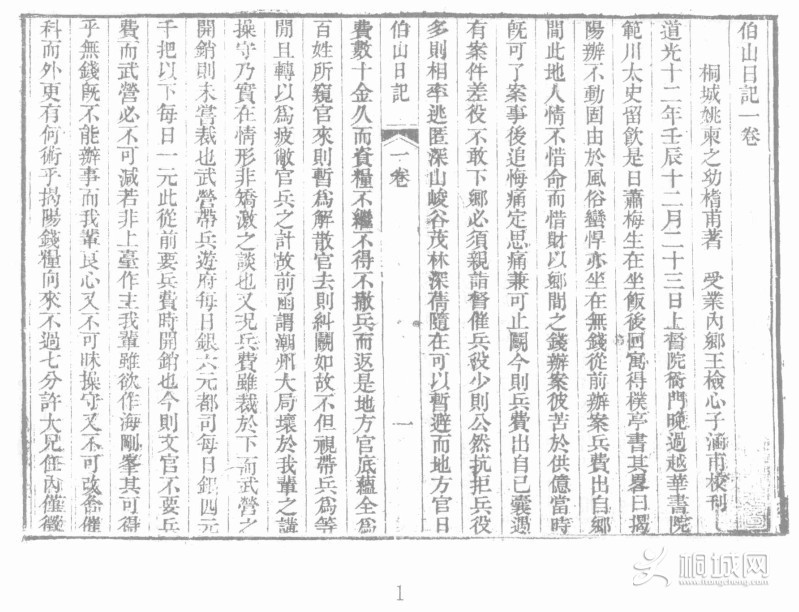 伯山日記一卷
桐城姚柬之幼榰甫著　受業內鄉王檢心子涵甫校刊
道光十二年壬辰十二月二十三日上督院衙門晚過越華書院
範川太史留飲是日蕭梅生在坐飯後回寓得樸亭書其畧曰揭
陽辦不動固由於風俗蠻悍亦坐在無錢從前辦案兵費出自鄉
間此地人情不惜命而惜財以鄉間之錢辦案彼苦於供億當時
旣可了案事後追悔痛定思痛兼可止鬭今則兵費出自己囊遇
有案件差役不敢下鄉必須親詣督催兵役少則公然抗拒兵役
多則相率逃匿深山峻谷茂林深箐隨在可以暫避而地方官日
伯山日記　一卷　一
費數十金久而資糧不繼不得不撤兵而返是地方官底蘊全爲
百姓所窺官來則暫爲解散官去則糾鬭如故不但視帶兵爲等
閒且轉以爲疲敝官兵之計故前函謂潮州大局壞於我輩之講
操守乃實在情形非矯激之談也又況兵費雖裁於下而武營之
開銷則未嘗裁也武營帶兵遊府每日銀六元都司每日銀四元
千把以下每日一元此從前要兵費時開銷也今則文官不要兵
費而武營必不可減若非上臺作主我輩雖欲作海剛峯其可得
乎無錢旣不能辦事而我輩良心又不可昧操守又不可改舍催
科而外更有何術乎揭陽錢糧向來不過七分許大兄任內催徵
桐城网
itongcheng.cc
1